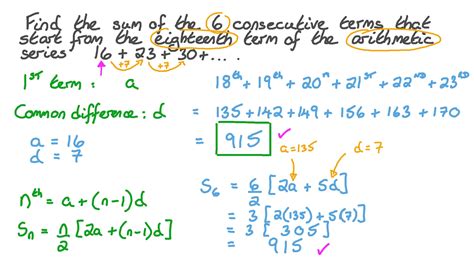 Find the sum of the 6 consecutive terms that
start from the eighteenth term of the arithmetic
series 16 + 23 + 30 + ... .
+7 +7
1ST term : a
Common difference : d
a = 16
d = 7
nth = a + (n-1)d
Sn = n/2 [2a + (n-1)d]
18th + 19th + 20th + 21ST + 22ND + 23RD
= 135 + 142 + 149 + 156 + 163 + 170
= 915 ✓
a = 135 d = 7
S6 = 6/2 [2a + 5d]
= 3 [2(135) + 5(7)]
= 3 [305]
= 915 ✓